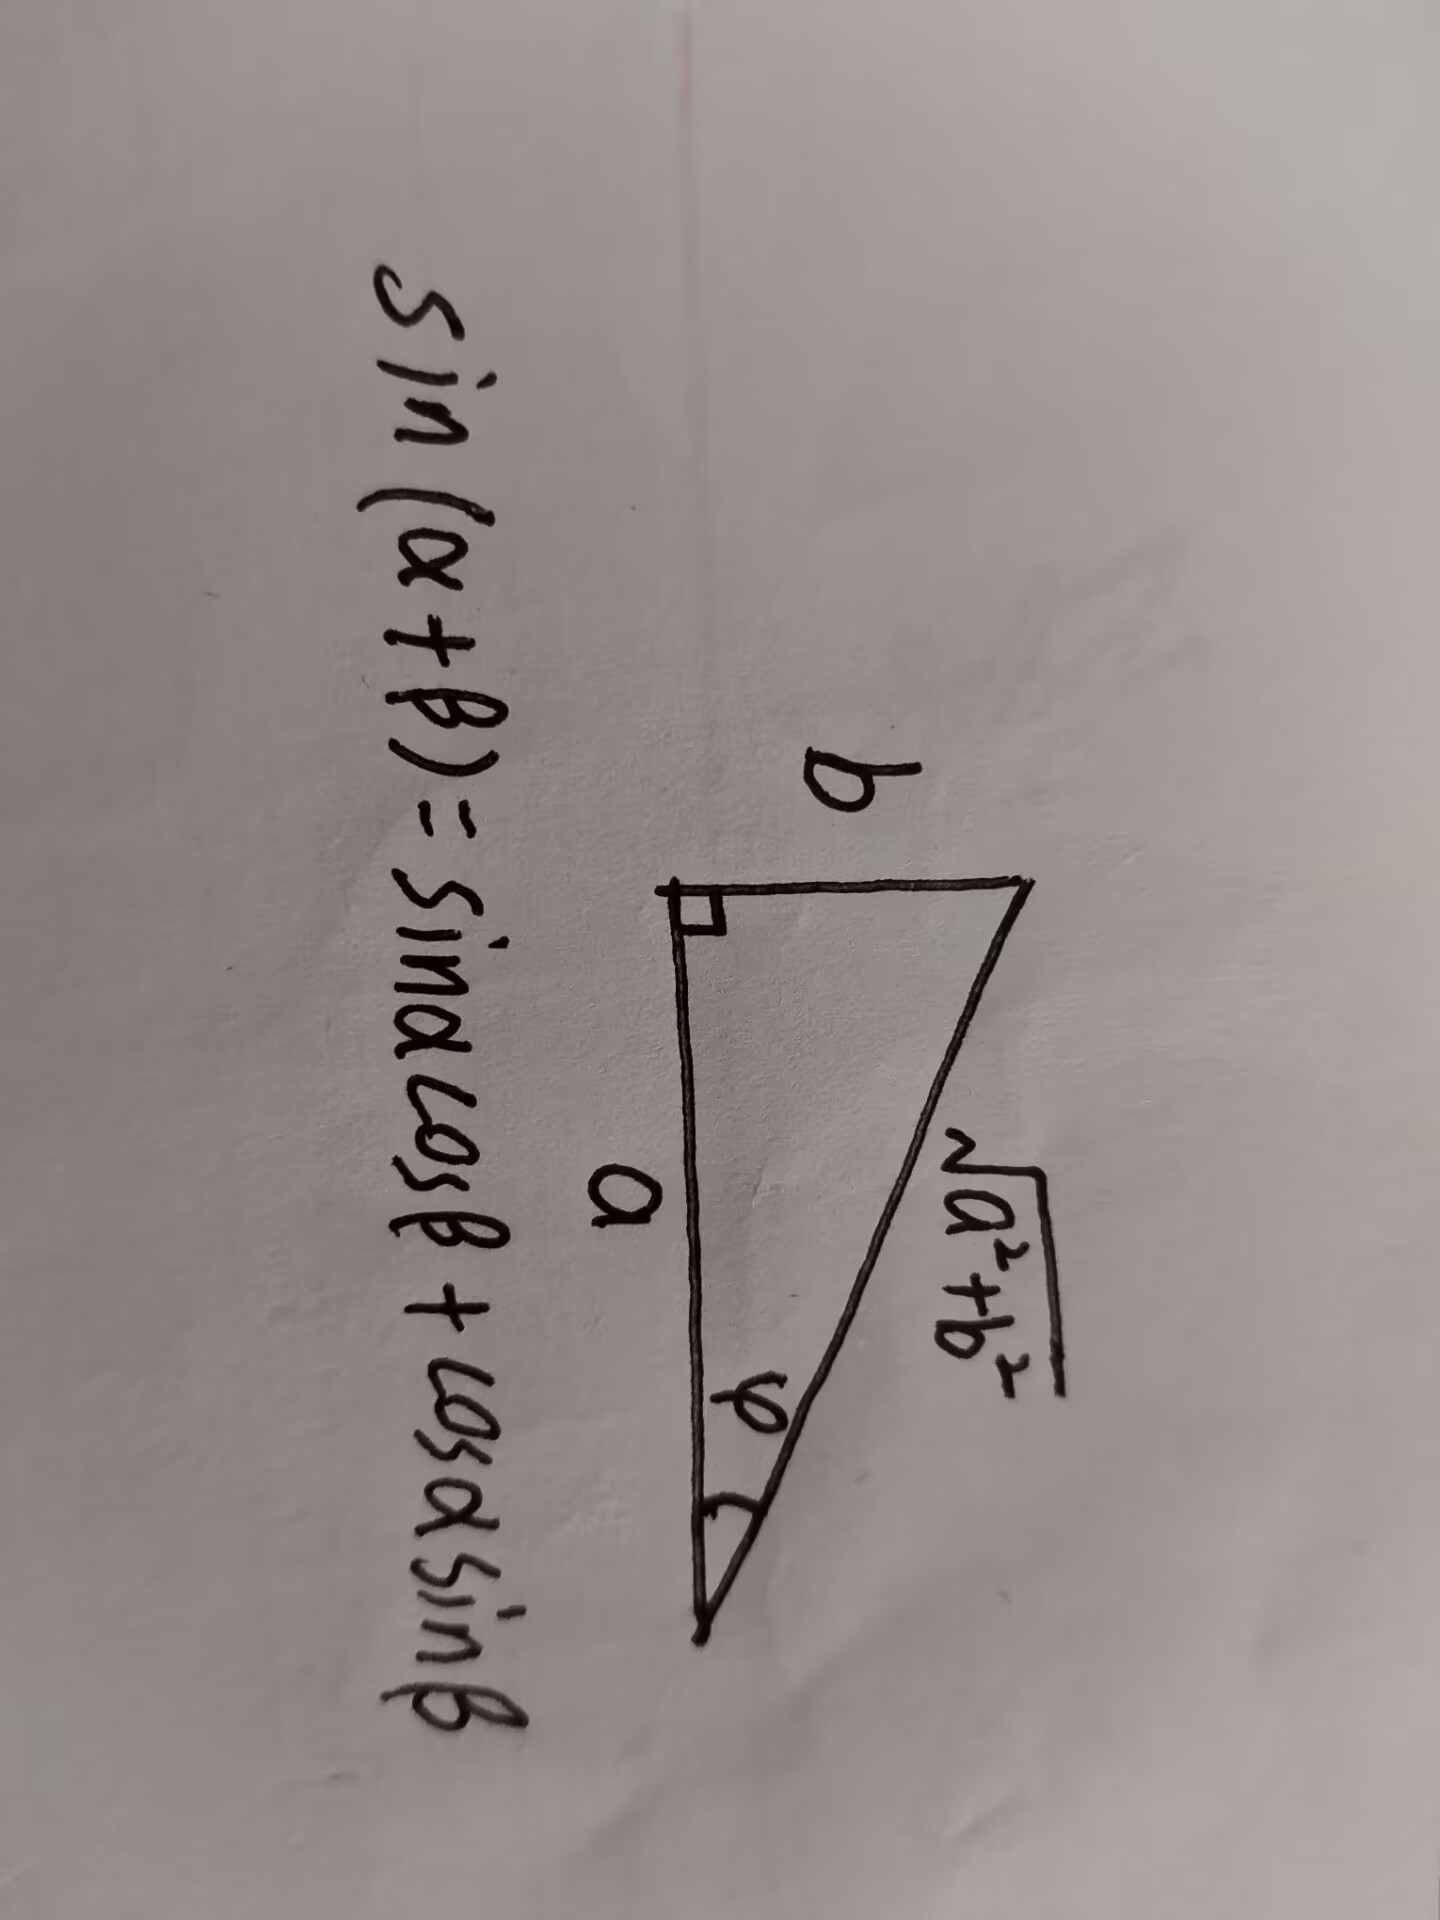 √a²+b²
b
φ
a
sin(α+β)=sinαcosβ+cosαsinβ